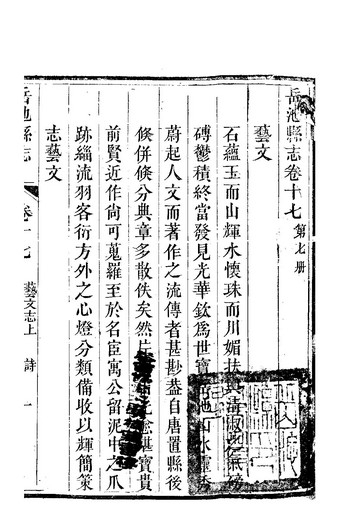 岳池縣志卷十七 第七册
藝文
石蘊玉而山輝水懷珠而川媚扶輿清淑之氣磅
礴鬱積終當發見光華欽為世寶岳池山水靈秀
蔚起人文而著作之流傳者甚尠蓋自唐置縣後
倏併倏分典章多散佚矣然片 愈堪寶貴
前賢近作尚可蒐羅至於名臣寓公留泥中之爪
跡緇流羽客衍方外之心燈分類備收以輝簡策
志藝文
岳池縣志 卷十七 藝文志上 詩 一